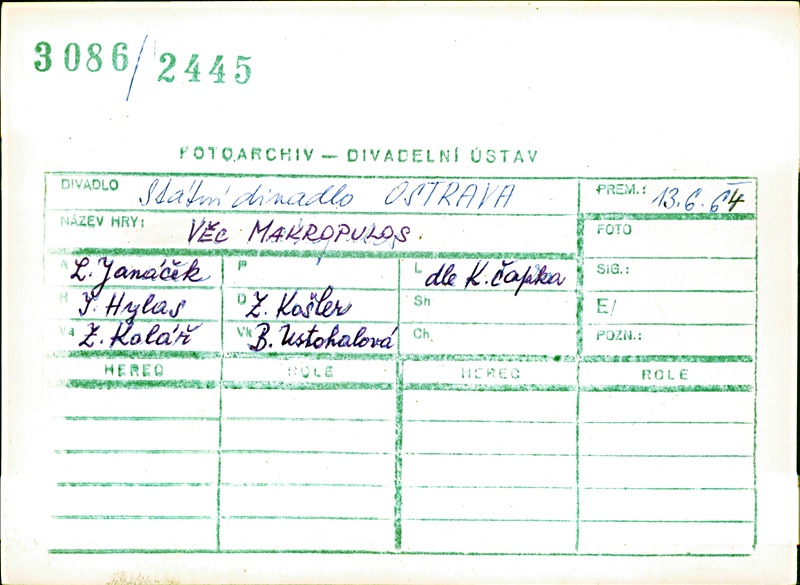 3086/2445
FOTOARCHIV — DIVADELNÍ ÚSTAV
DIVADLO Státní divadlo OSTRAVA PREM.: 13.6.64
NÁZEV HRY: VĚC MAKROPULOS. FOTO
A L. Janáček P L dle K. Čapka SIG.:
R I. Hylas D Z. Košler Sh E/
Va Z. Kolář Vk B. Ustohalová Ch. POZN.:
HEREC ROLE HEREC ROLE